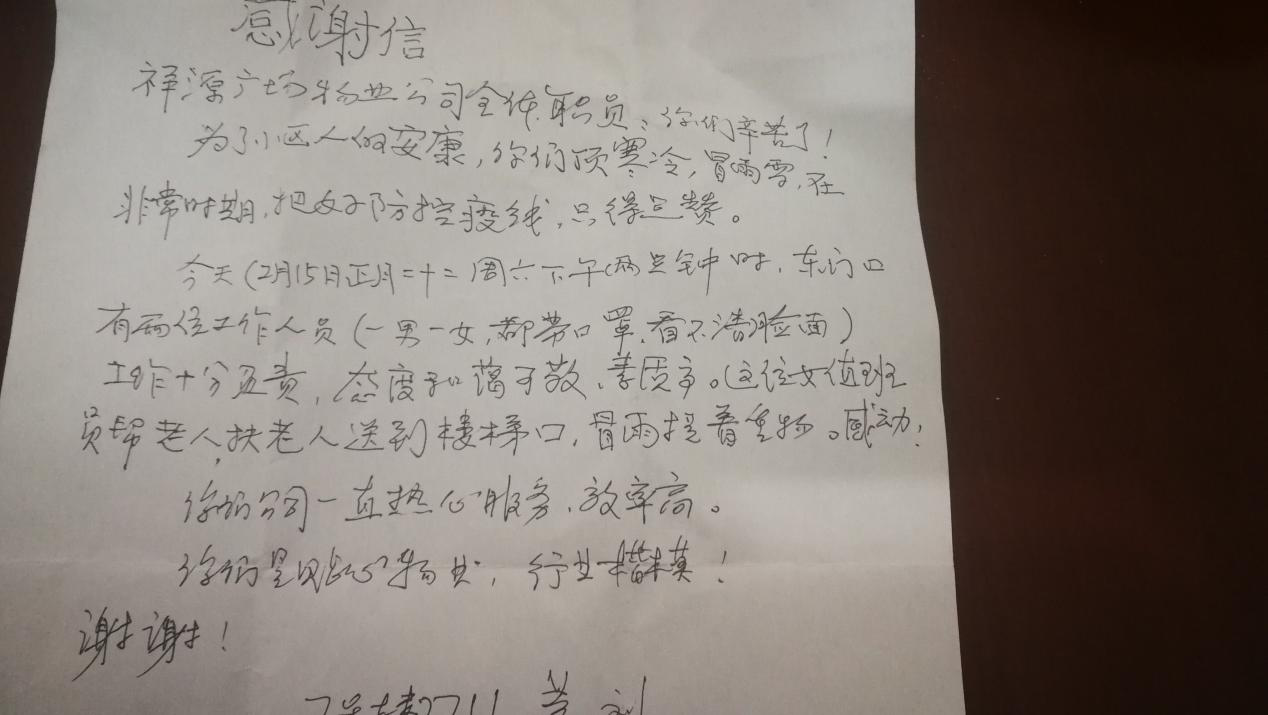 感谢信
祥源广场物业公司全体职员：你们辛苦了！
为了小区人的安康，你们顶寒冷，冒雨雪，在
非常时期，把好防控疫线，只得点赞。
今天(2月15日正月二十二周六下午)两点钟时，东门口
有两位工作人员(一男一女，都带口罩，看不清脸面)
工作十分负责，态度和蔼可敬，素质高。(这位女值班
员帮老人，扶老人送到楼梯口，冒雨提着生物。感动！
你们公司一直热心服务，效率高。
你们是贴心物业，行业楷模！
谢谢！